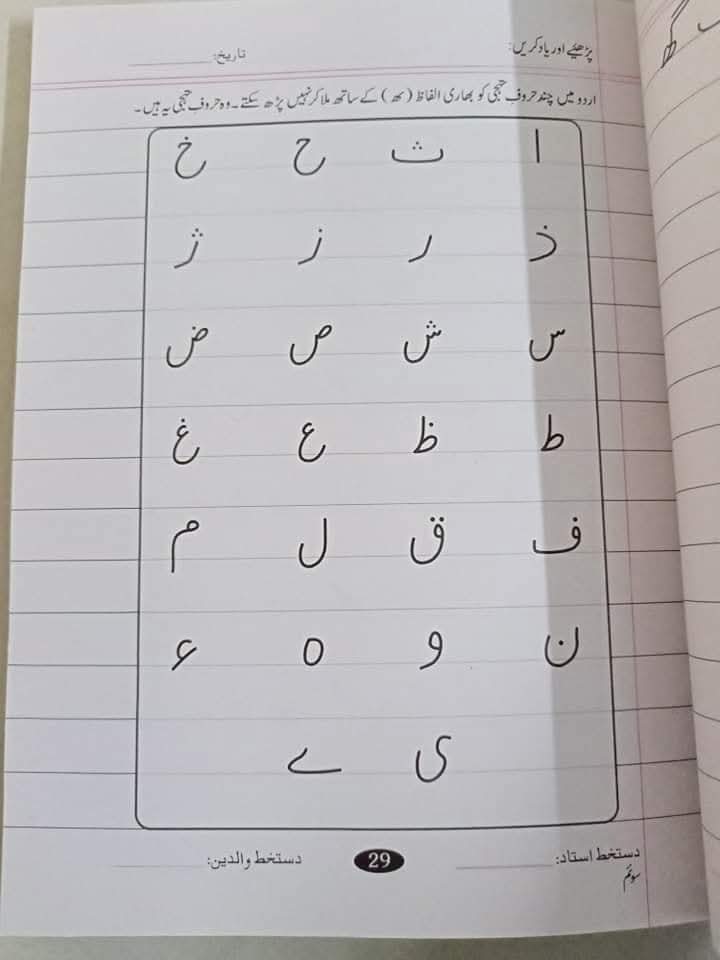 پڑھیے اور یاد کریں: تاریخ:
اردو میں چند حروفِ تہجی کو بھاری الفاظ (ھ) کے ساتھ ملا کر نہیں پڑھ سکتے۔ وہ حروفِ تہجی یہ ہیں۔
ا ث ح خ
ذ ر ز ژ
س ش ص ض
ط ظ ع غ
ف ق ل م
ن و ہ ء
ی ے
دستخط استاد: 29 دستخط والدین:
سوئم